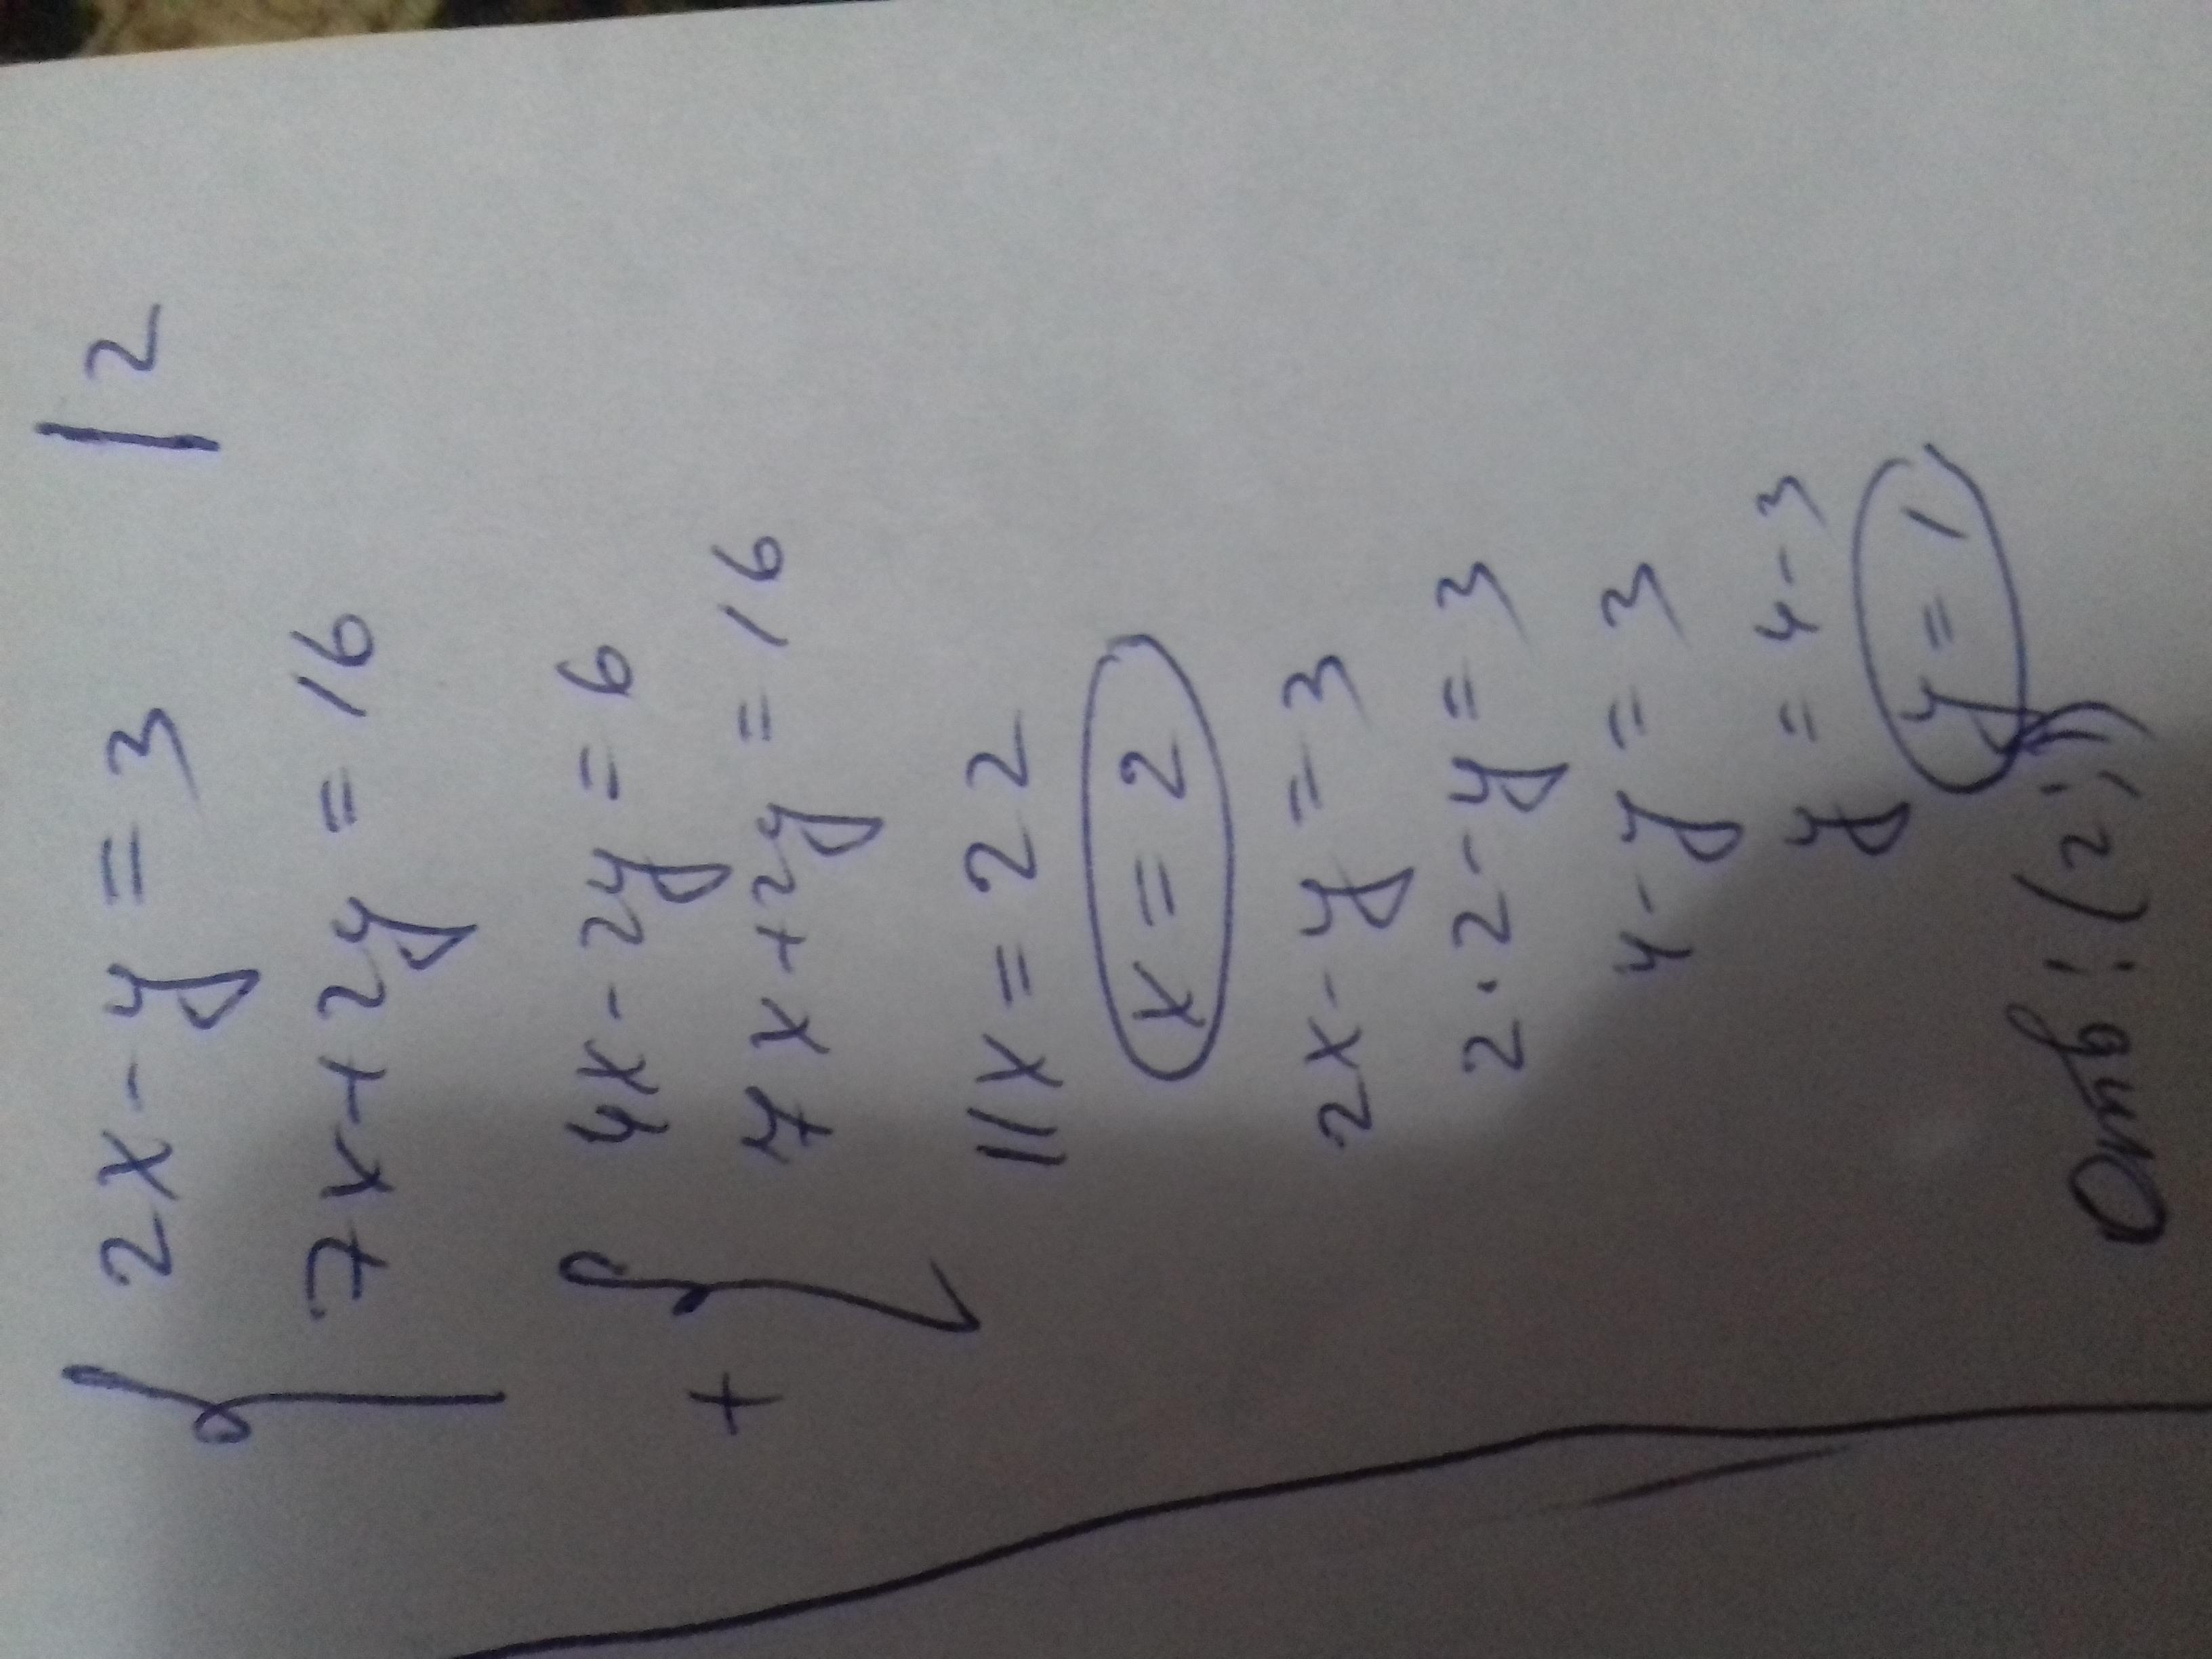 { 2x - y = 3 | 2
7x + 2y = 16
+ { 4x - 2y = 6
7x + 2y = 16
11x = 22
x = 2
2x - y = 3
2·2 - y = 3
4 - y = 3
y = 4 - 3
y = 1
Отв: (2; 1)